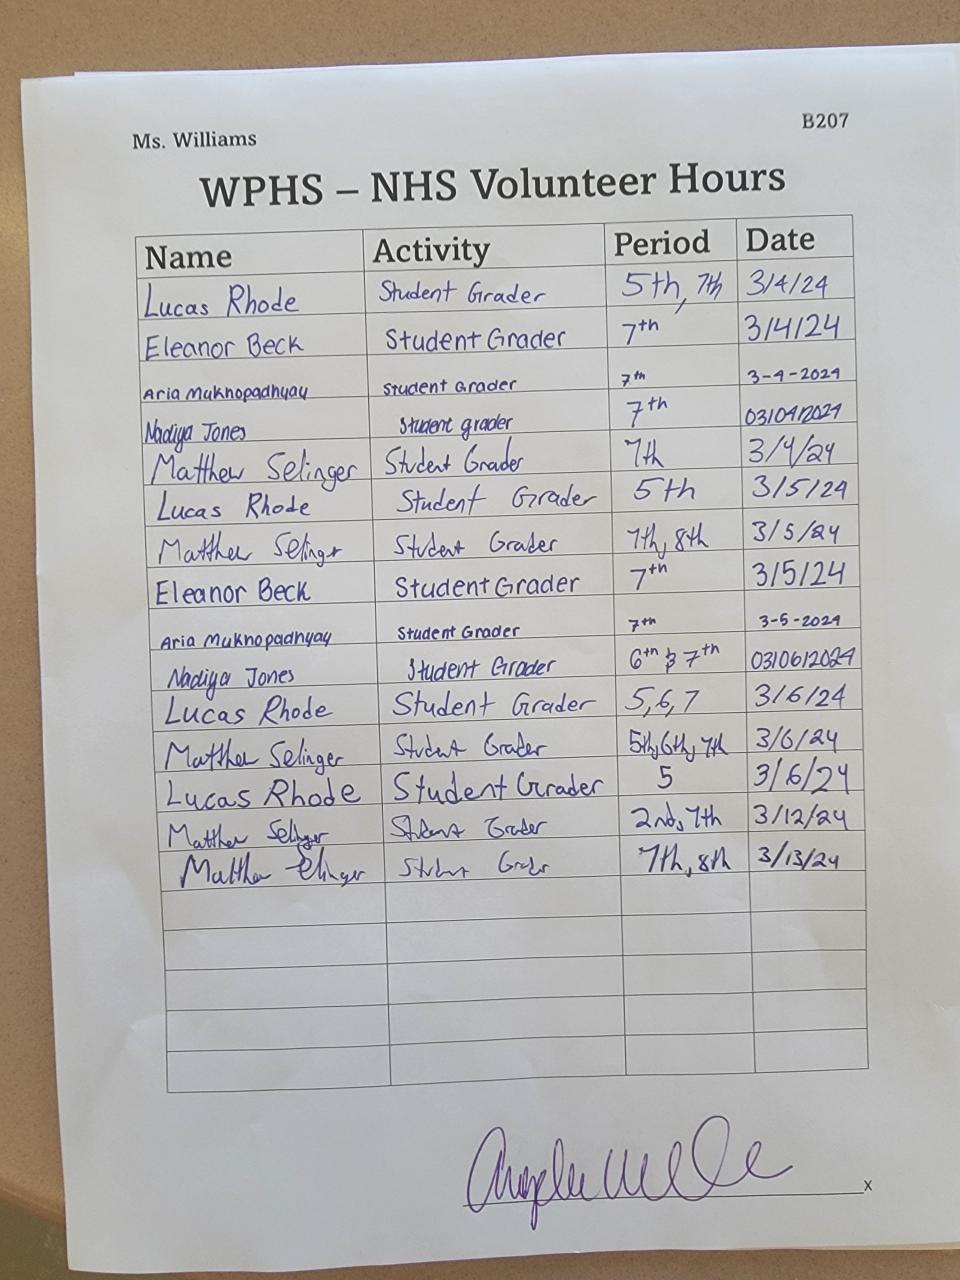 Ms. Williams B207
WPHS – NHS Volunteer Hours
Name Activity Period Date
Lucas Rhode Student Grader 5th, 7th 3/4/24
Eleanor Beck Student Grader 7th 3/4/24
Aria Mukhopadhyay Student Grader 7th 3-4-2024
Nadiya Jones Student grader 7th 03/04/2024
Matthew Selinger Student Grader 7th 3/4/24
Lucas Rhode Student Grader 5th 3/5/24
Matthew Selinger Student Grader 7th, 8th 3/5/24
Eleanor Beck Student Grader 7th 3/5/24
Aria Mukhopadhyay Student Grader 7th 3-5-2024
Nadiya Jones Student Grader 6th & 7th 03/06/2024
Lucas Rhode Student Grader 5,6,7 3/6/24
Matthew Selinger Student Grader 5th, 6th, 7th 3/6/24
Lucas Rhode Student Grader 5 3/6/24
Matthew Selinger Student Grader 2nd, 7th 3/12/24
Matthew Selinger Student Grader 7th, 8th 3/13/24
x